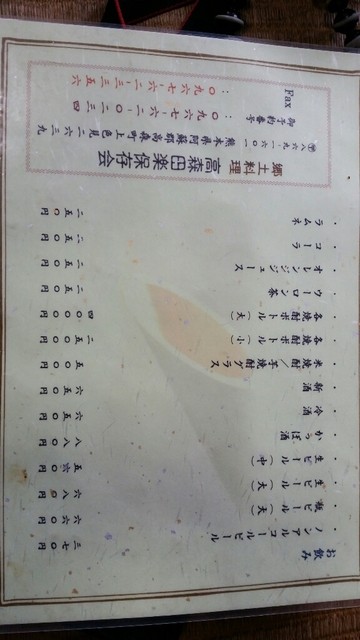 お飲み
ノンアルコールビール 三七〇円
瓶ビール（大） 六六〇円
生ビール（大） 六八〇円
生ビール（中） 五六〇円
かっぽ酒 八八〇円
冷酒 六五〇円
新酒 六五〇円
米焼酎／芋焼酎グラス 五〇〇円
各焼酎ボトル（小） 二五〇〇円
各焼酎ボトル（大） 四〇〇〇円
ウーロン茶 二五〇円
オレンジジュース 二五〇円
コーラ 二五〇円
ラムネ 二五〇円
郷土料理 高森田楽保存会
〒八六九-一六〇一 熊本県阿蘇郡高森町上色見二六三九
御予約番号：〇九六七-六二-〇二三四
Fax：〇九六七-六二-